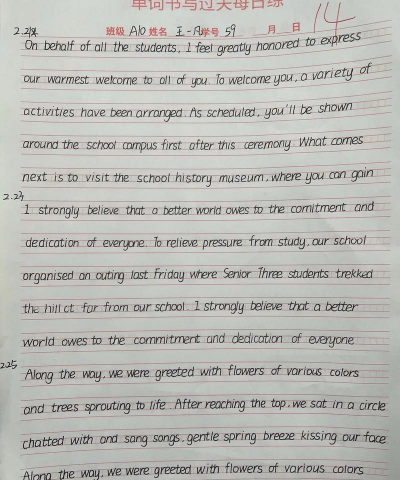 单词书写过关每日练
14
班级 A10 姓名 王一凡 学号 59 月 日
On behalf of all the students, I feel greatly honored to express
our warmest welcome to all of you. To welcome you, a variety of
activities have been arranged. As scheduled, you'll be shown
around the school campus first after this ceremony. What comes
next is to visit the school history museum, where you can gain
2.24
I strongly believe that a better world owes to the comitment and
dedication of everyone. To relieve pressure from study, our school
organised an outing last Friday where Senior Three students trekked
the hill ct far from our school. I strongly believe that a better
world owes to the commitment and dedication of everyone
2.25
Along the way, we were greeted with flowers of various colors
and trees sprouting to life. After reaching the top, we sat in a circle
chatted with and sang songs, gentle spring breeze kissing our face
Along the way, we were greeted with flowers of various colors